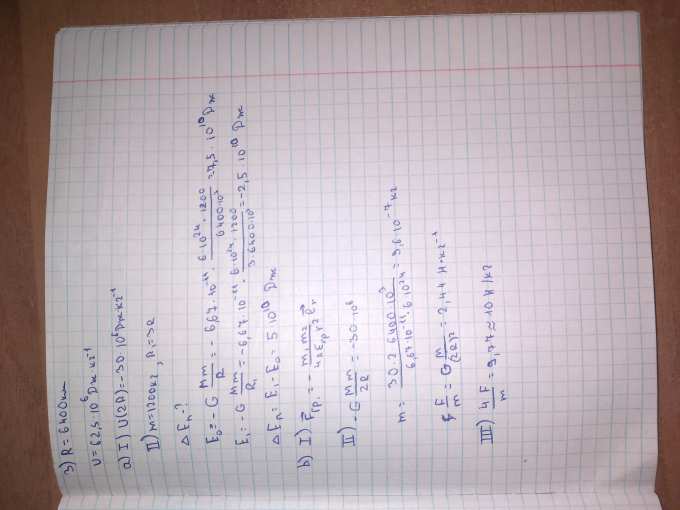 3) R = 6400км
U = 62,5·10⁶ Дж кг⁻¹
а) I) U(2R) = -30·10⁶ Дж кг⁻¹
II) m = 1200 кг, R₁ = 3R
ΔEₙ?
E₀ = -G Mm/R = -6,67·10⁻¹¹ · 6·10²⁴·1200/6400·10³ = 7,5·10¹⁰ Дж
E₁ = -G Mm/R₁ = -6,67·10⁻¹¹ · 6·10²⁴·1200/3·6400·10³ = -2,5·10¹⁰ Дж
ΔEₙ = E₁ - E₀ = 5·10¹⁰ Дж
b) I) F гр. = - m₁m₂/4πεгр r² e⃗r
II) -G Mm/2R = -30·10⁶
m = 30·2·6400·10³/6,67·10⁻¹¹·6·10²⁴ = 9,6·10⁻⁷ кг
F/m = G M/(2R)² = 2,44 Н·кг⁻¹
III) 4F/m = 9,77 ≈ 10 Н/кг